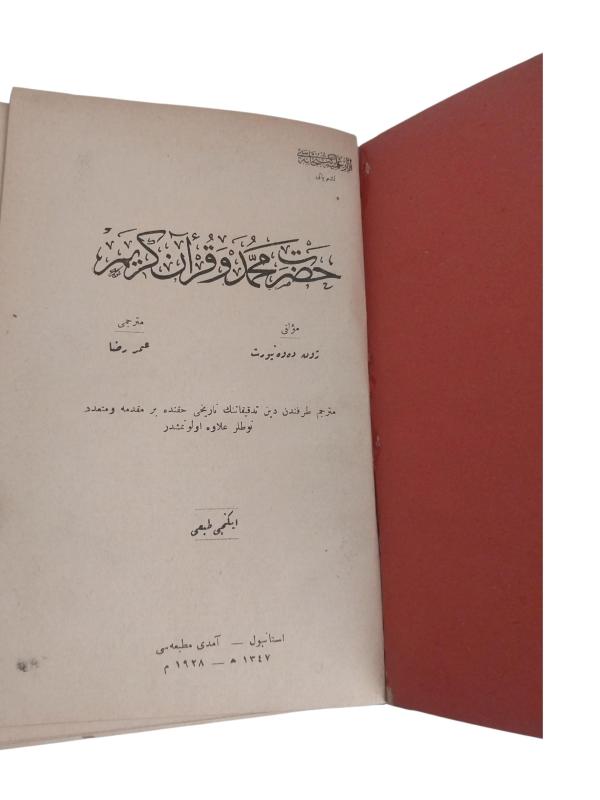 حضرت محمد و قرأن كريم
مؤلفی
مترجمی
ژون ده وه نپورت
عمر رضا
مترجم طرفندن دين تدقيقاتنك تاريخی حقنده بر مقدمه و متعدد
نوطلر علاوه اولونمشدر
ايكنجی طبعی
استانبول — آمدی مطبعه‌سی
١٣٤٧ ﻫ — ١٩٢٨ م